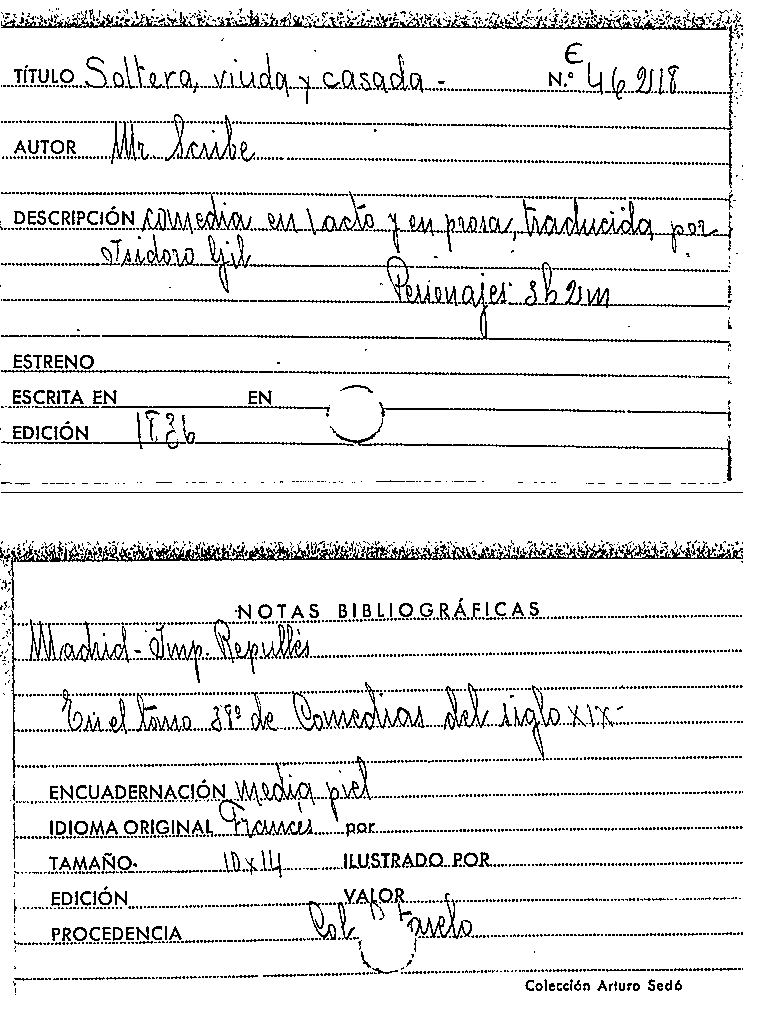 TÍTULO Soltera, viuda y casada - N.º E 46 2118
AUTOR Mr Scribe
DESCRIPCIÓN comedia en 1 acto y en prosa, traducida por
Isidoro Gil
Personajes: 3h 2m
ESTRENO
ESCRITA EN EN
EDICIÓN 1836
NOTAS BIBLIOGRÁFICAS
Madrid - Imp. Repullés
En el tomo de Comedias del siglo XIX -
ENCUADERNACIÓN media piel
IDIOMA ORIGINAL Francés por
TAMAÑO 10 x 14 ILUSTRADO POR
EDICIÓN VALOR
PROCEDENCIA Col
Colección Arturo Sedó